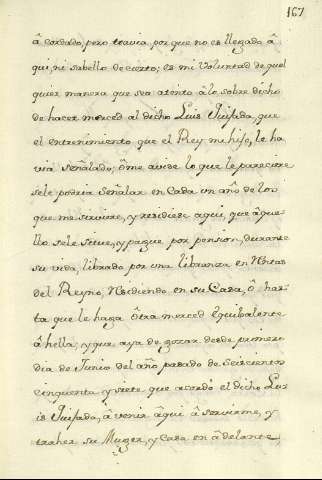 167
â cordado, pero travia, por que no es llegado â
qui, ni sabello de cierto; es mi Voluntad de qual
quier manera que sea atento âlo sobre dicho
de hacer merced al dicho Luis Quijada, que
el entretenimiento que el Rey mi hijo, le ha
via señalado; ôme avise lo que le pareciere
sele podria Señalar en Cada un año de los
que me sirviere, y residiese aqui, que âque-
llo sele situe, y pague por pension, durante
su vida, librado por una libranza en
del Reyno, Residiendo en su Casa, ô has-
ta que le haga ôtra merced Equibalente
â hella; y que aya de gozar desde primero
dia de Junio del año pasado de Seiscientos
cinquenta y siete que acordó el dicho Lu-
is Quijada, â venir âqui â servirme, y
traher su Muger, y Casa en âdelante,